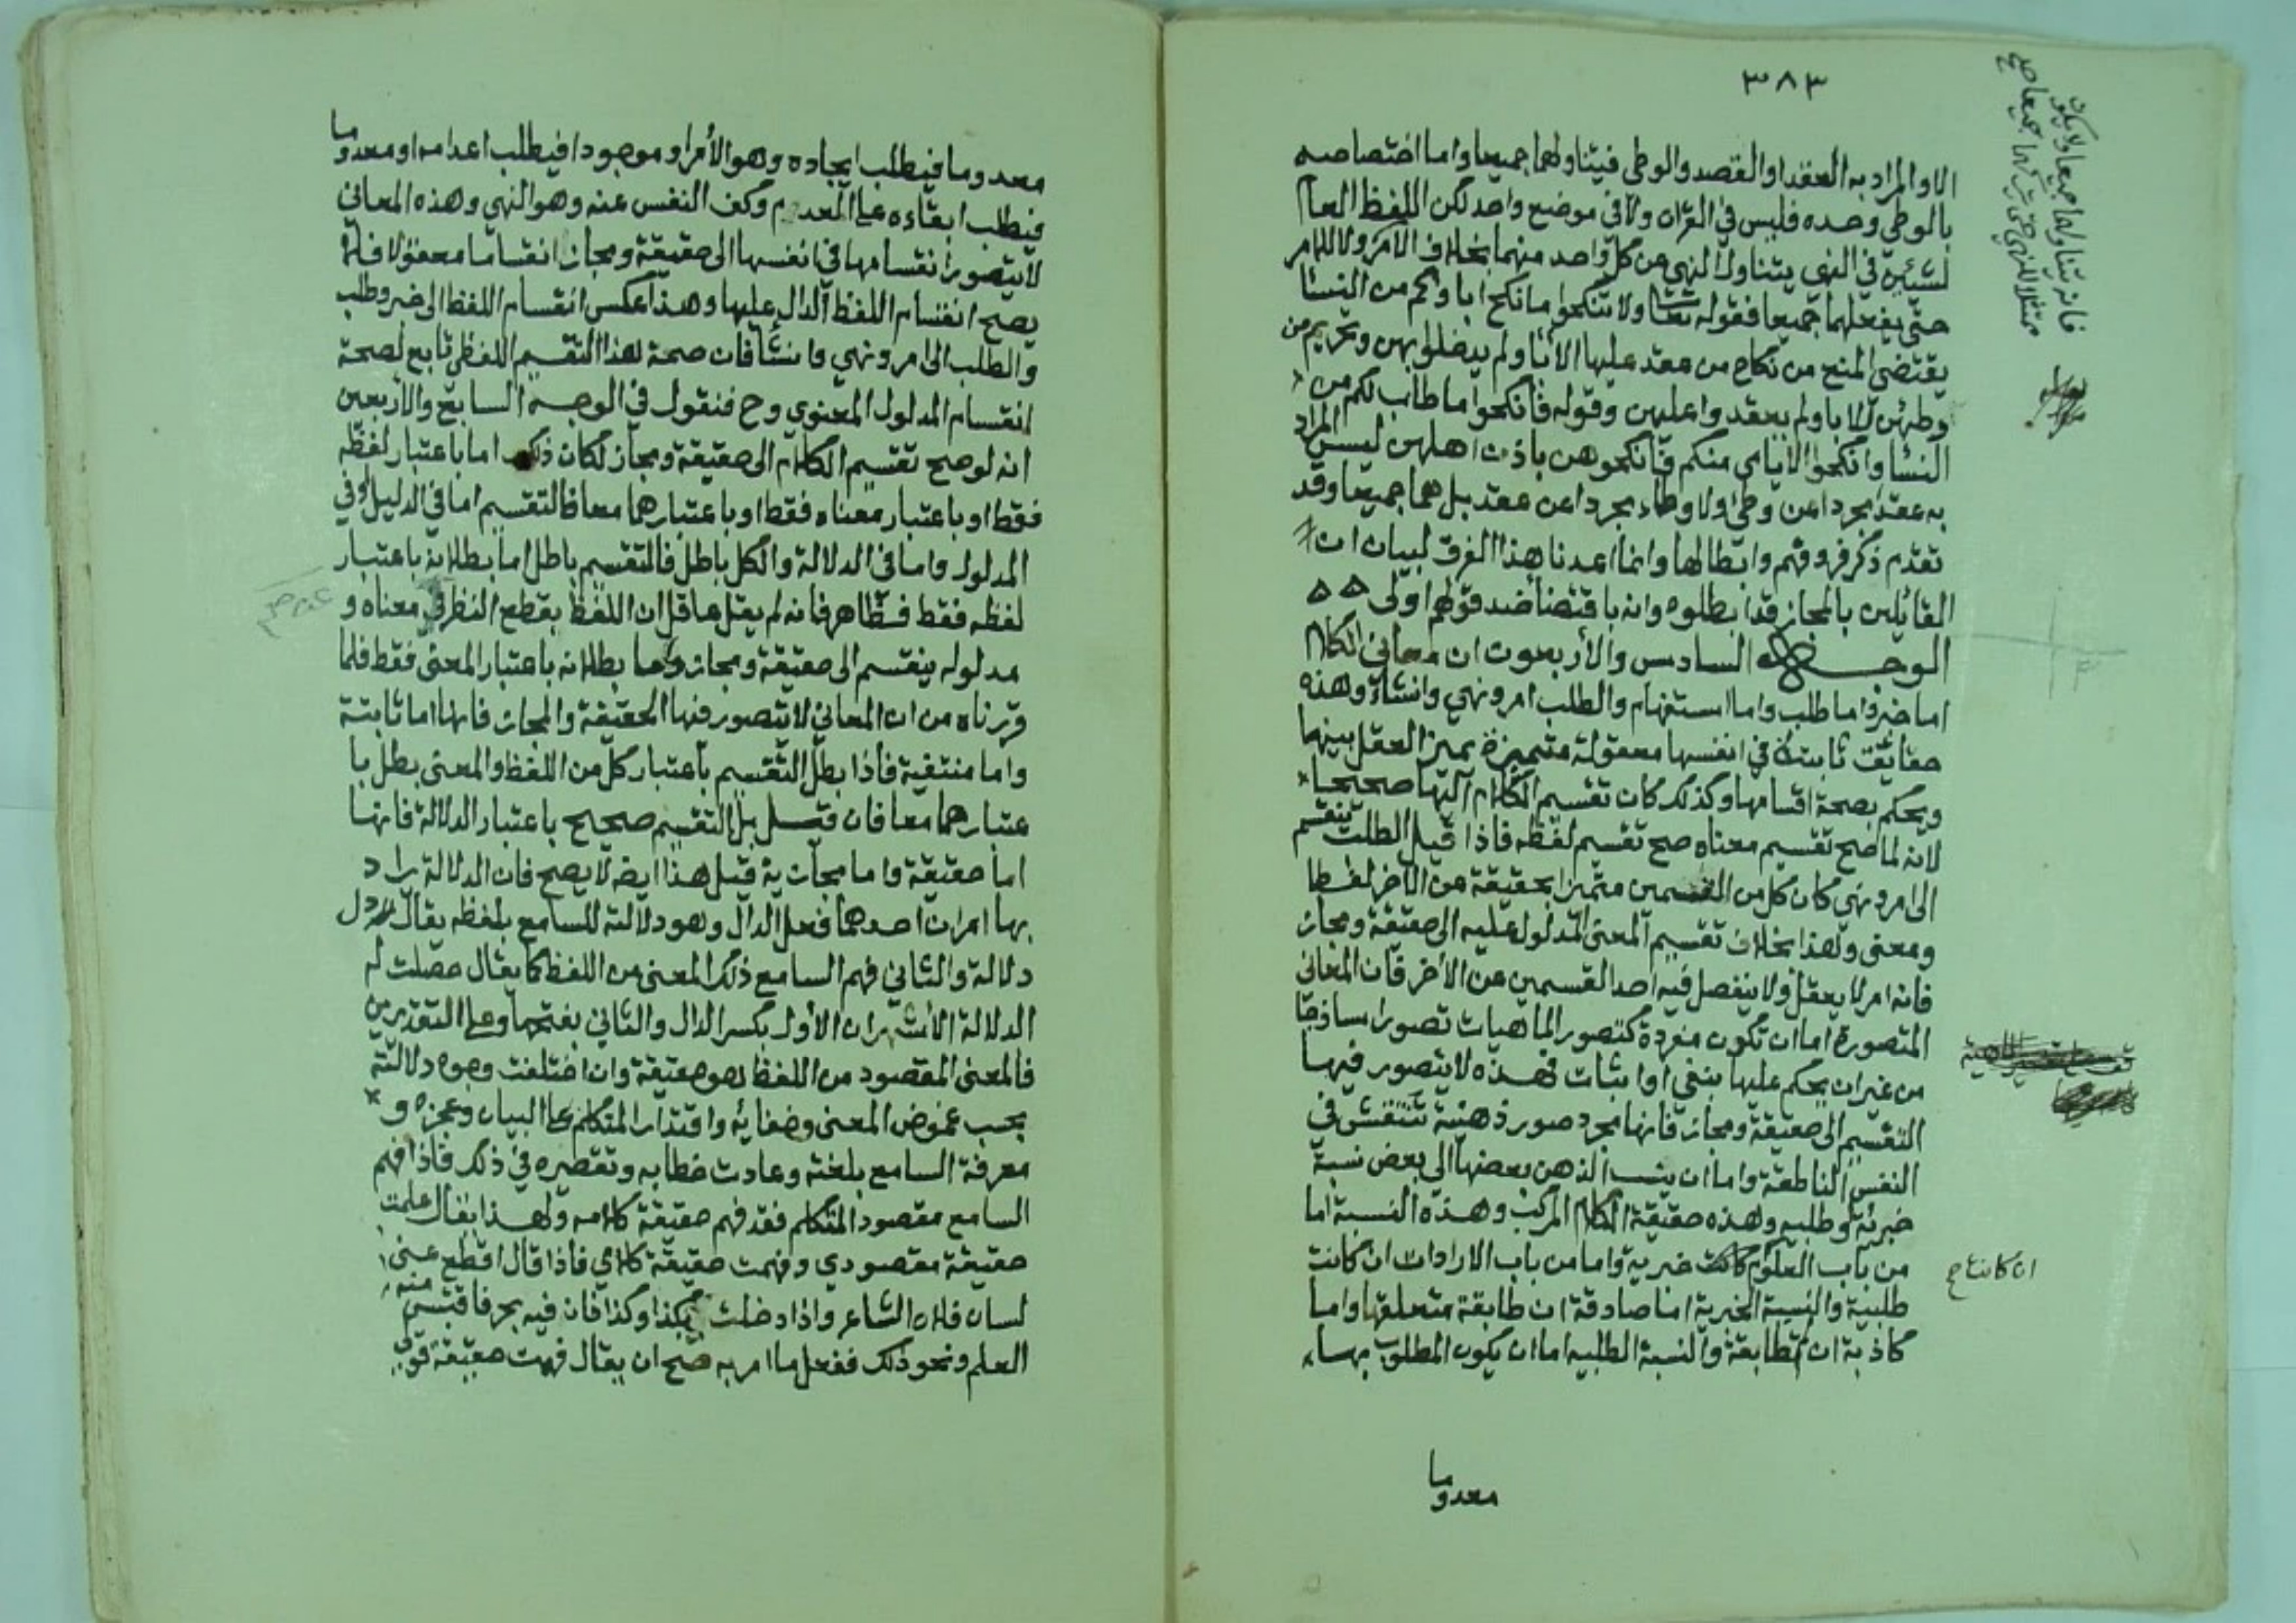 ٣٨٣
الا والمراد به العقد او القصد والوطي فيتناولهما جميعا واما اختصاصه
بالوطي وحده فليس في القران ولا في موضع واحد لكن اللفظ العام
لشيئين في النهي يتناول النهي عن كل واحد منهما بخلاف الامر ولا للامر
حتى يفعلهما جميعا فقوله تعا ولا تنكحوا ما نكح اباوكم من النسا
يقتضي المنع من نكاح من عقد عليها الابا ولم يدخلوا بهن وتحريم من
وطئهن الابا ولم يعقدوا عليهن وقوله فانكحوا ما طاب لكم من
النسا وانكحوا الايامى منكم فانكحوهن باذن اهلهن ليس المراد
به عقد مجردا عن وطئ ولا وطاء مجردا عن عقد بل هما جميعا وقد
تقدم ذكر فروقهم وابطالها وانما اعدنا هذا الفرق لبيان ان
القائلين بالمجاز قد ابطلوه وانه باقتضا ضد قولهم اولى ه ه
الوجه السادس والأربعون ان معاني الكلام
اما خبر واما طلب واما استفهام والطلب امر ونهي وانشاء وهذه
حقايق ثابتة في انفسها معقولة متميزة يميز العقل بينها
ويحكم بصحة اقسامها وكذلك كان تقسيم الكلام اليها صحيحا
لانه لما صح تقسيم معناه صح تقسيم لفظه فاذا قيل الطلب ينقسم
الى امر ونهي كان كل من القسمين متميزا بحقيقة من الآخر لفظا
ومعنى وهذا بخلاف تقسيم المعنى المدلول عليه الى حقيقة ومجاز
فانه امر لا يعقل ولا ينفصل فيه احد القسمين عن الآخر فان المعاني
المتصورة اما ان تكون مفردة كتصور الماهيات تصورا ساذجا
من غير ان يحكم عليها بنفي او اثبات فهذه لا يتصور فيها
التقسيم الى حقيقة ومجاز فانها مجرد صور ذهنية تنتقش في
النفس الناطقة واما ان ينسب الذهن بعضها الى بعض نسبة
خبرية او طلبيه وهذه حقيقة الكلام المركب وهذه النسبة اما
من باب العلوم كانت خبرية واما من باب الارادات ان كانت
طلبية والنسبة الخبرية اما صادقة ان طابقة متعلقها واما
كاذبة ان لم تطابقة والنسبة الطلبيه اما ان يكون المطلوب بها
معدوما
فانه يتناولهما جميعا ولا يكون
ممتثلا للنهي حتى يتركهما جميعا صح
ان كانت صح
معدوما فيطلب ايجاده وهو الأمر او موجودا فيطلب اعدامه او معدوما
فيطلب ابقاءه على العدم وكف النفس عنه وهو النهي وهذه المعاني
لا يتصور انقسامها في انفسها الى حقيقة ومجاز انقساما معقولا فلا
يصح انقسام اللفظ الدال عليها وهذا عكس انقسام اللفظ الى خبر وطلب
والطلب الى امر ونهي وانشا فان صحة هذا التقسيم اللفظي تابع لصحة
انقسام المدلول المعنوي وح فنقول في الوجه السابع والأربعين
انه لو صح تقسيم الكلام الى حقيقة ومجاز لكان ذلك اما باعتبار لفظه
فقط او باعتبار معناه فقط او باعتبارهما معا فالتقسيم اما في الدليل او في
المدلول واما في الدلالة والكل باطل فالتقسيم باطل اما بطلانه باعتبار
لفظه فقط فظاهر فانه لم يقل عاقل ان اللفظ بقطع النظر في معناه و
مدلوله ينقسم الى حقيقة ومجاز واما بطلانه باعتبار المعنى فقط فلما
قررناه من ان المعاني لا يتصور فيها الحقيقة والمجاز فانها اما ثابتة
واما منتفية فاذا بطل التقسيم باعتبار كل من اللفظ والمعنى بطل با
عتبارهما معا فان قيل بل التقسيم صحيح باعتبار الدلالة فانها
اما حقيقة واما مجازية قيل هذا ايضا لا يصح فان الدلالة يراد
بها امران احدهما فعل الدال وهو دلالته للسامع بلفظه يقال دل
دلالة والثاني فهم السامع ذلك المعنى من اللفظ كما يقال حصلت له
الدلالة الا شهر ان الأول بكسر الدال والثاني بفتحها وعلى التقديرين
فالمعنى المقصود من اللفظ هو حقيقة وان اختلفت وجوه دلالته
بحسب غموض المعنى وخفائه واقتدار المتكلم على البيان وعجزه و
معرفة السامع بلغته وعادت خطابه وتقصيره في ذلك فاذا فهم
السامع مقصود المتكلم فقد فهم حقيقة كلامه ولهذا يقال علمت
حقيقة مقصودي وفهمت حقيقة كلامي فاذا قال اقطع عني
لسان فلان الشاعر واذا دخلت بلد كذا وكذا فان فيه بحر فاقتبس منه
العلم ونحو ذلك ففعل ما امر به صح ان يقال فهمت حقيقة قولي